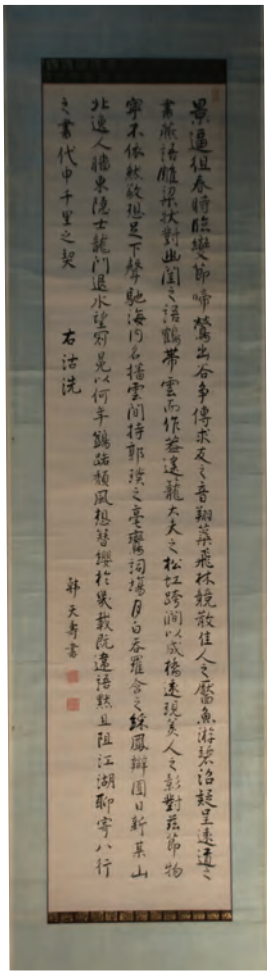 景逼徂春時臨變節啼鶯出谷争傳求友之音翔蘂飛林競散佳人之靨魚游碧沼疑呈遠道之
書燕語雕梁状對幽閨之語鶴帯雲而作蓋遥籠大夫之松虹跨澗以成橋遠現美人之影對茲節物
寧不依然敬想足下聲馳海内名播雲間持郭璞之毫鸞詞場月白吞羅含之綵鳳辯囿日新某山
北逸人牆東隠士龍門退水望冠冕以何年鷁路頽風想簪纓於幾載既違語默且阻江湖聊寄八行
之書代申千里之契 右沽洗
韓天壽書